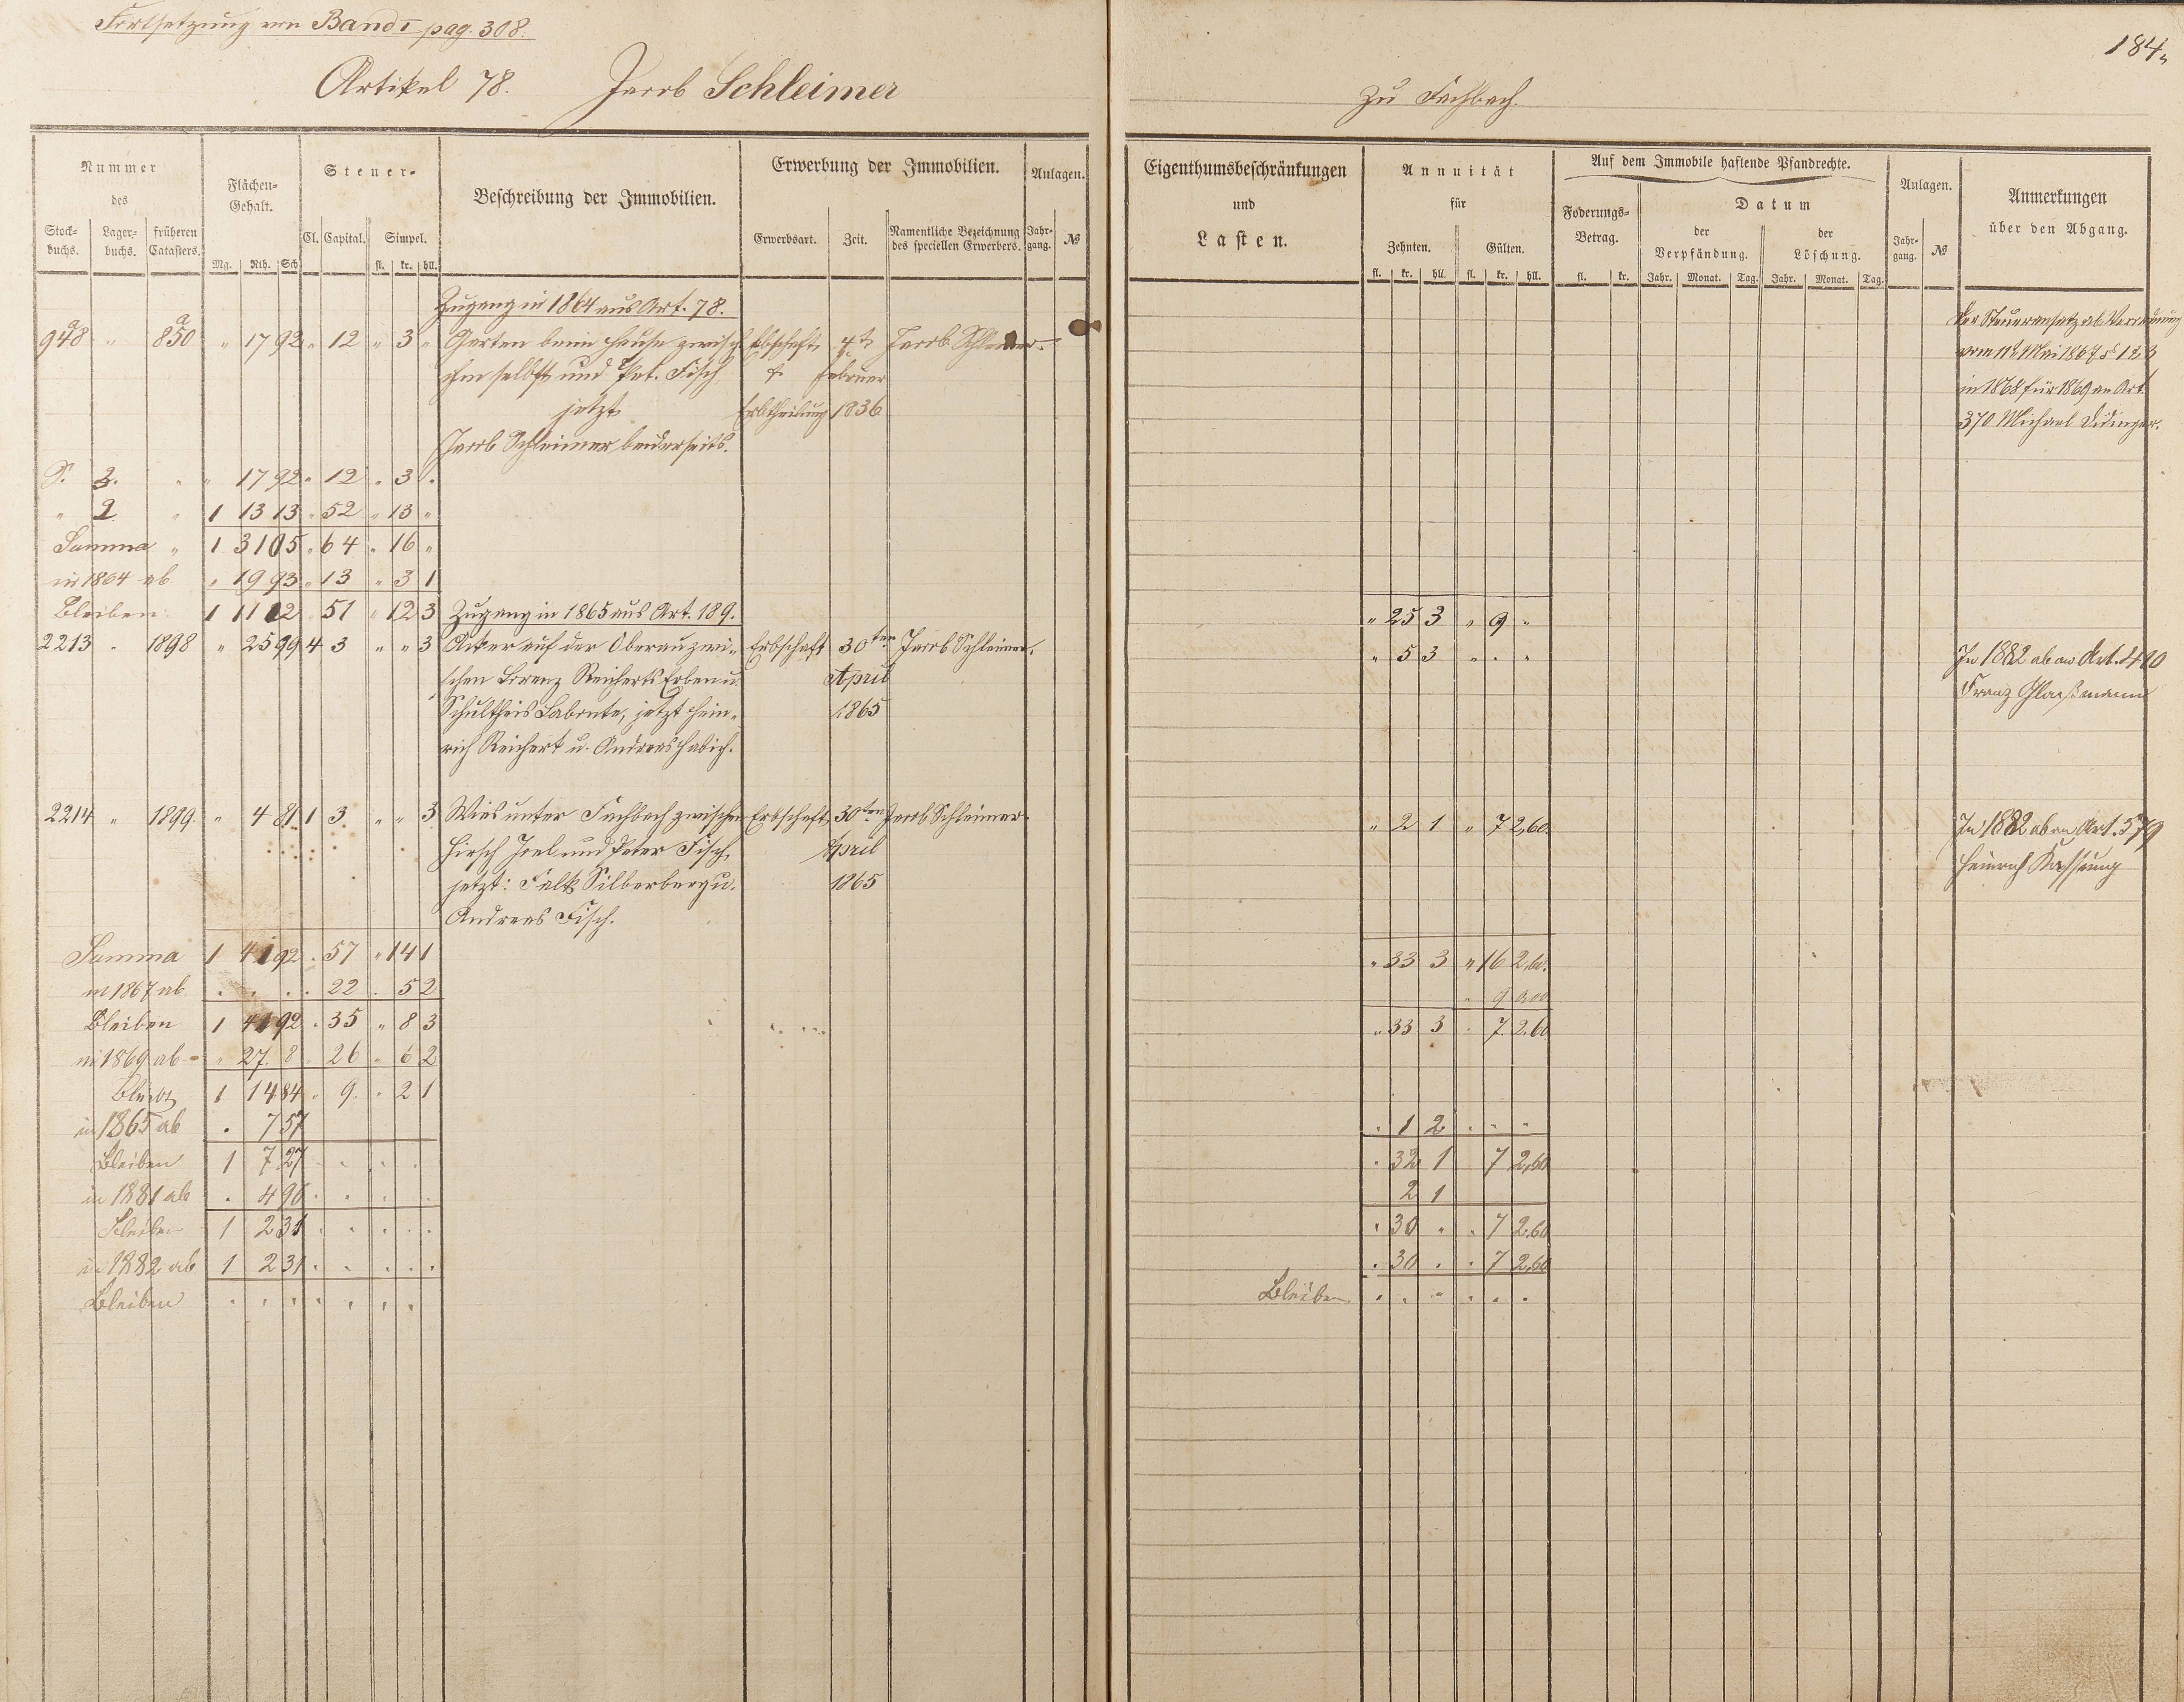 Fortsetzung von Band I pag. 308.
184.
Artikel 78. Jacob Schleimer
zu Fachbach.
Nummer des
Stock-buchs. Lager-buchs. früheren Catasters.
Flächen-Gehalt.
Mg. Rth. Sch
Steuer-
Cl. Capital. Simpel.
fl. kr. hll.
Beschreibung der Immobilien.
Erwerbung der Immobilien.
Erwerbsart. Zeit. Namentliche Bezeichnung des speciellen Erwerbers.
Anlagen.
Jahr-gang. №
Eigenthumsbeschränkungen
und
Lasten.
Annuität
für
Zehnten. Gülten.
fl. kr. hll. fl. kr. hll.
Auf dem Immobile haftende Pfandrechte.
Foderungs-Betrag.
fl. kr.
Datum
der Verpfändung. der Löschung.
Jahr. Monat. Tag. Jahr. Monat. Tag.
Anlagen.
Jahr-gang. №
Anmerkungen
über den Abgang.
Zugang in 1864 aus Art. 78.
948a " 850a " 17 92 " 12 " 3 " Garten beim Hause zwisch Erbschaft 4t Jacob Schleimer
ihm selbst und Pet. Fisch & Februar
jetzt Erbtheilung 1836
Jacob Schleimer beiderseits.
Der Steueransatz ab Verordnung
vom 11t Mai 1867 § 1 2 3
in 1868 für 1869 an Art.
370 Michael
S. 3. " " 17 92 " 12 " 3 "
" 2 " 1 13 13 " 52 " 13 "
Summa " 1 31 05 " 64 " 16 "
in 1864 ab " 19 93 " 13 " 3 1
Bleiben 1 11 12 " 51 " 12 3 Zugang in 1865 aus Art. 189. " 25 3 " 9 "
2213 " 1898 " 25 99 4 3 " " 3 Acker auf der Oberau zwi- Erbschaft 30ten Jacob Schleimer. " 5 3 " " " In 1882 ab an Art. 410
schen Lorenz Reicherts Erben u. April Franz
Schultheis Labonte, jetzt Hein- 1865
rich Reichert u. Andreas Habich.
2214 " 1899 " 4 81 1 3 " " 3 Wies unter Fachbach zwischen Erbschaft 30ten Jacob Schleimer " 2 1 " 7 2,60 In 1882 ab an Art. 579
Hirsch Joel und Peter Fisch April Heinrich
jetzt: Falk Silberberg u. 1865
Andreas Fisch.
Summa 1 41 92 " 57 " 14 1 " 33 3 " 16 2,60
in 1867 ab . . . . 22 . 5 2 " 9 0.00
Bleiben 1 41 92 " 35 " 8 3 " 33 3 " 7 2.60
in 1869 ab " 27 8 " 26 " 6 2
Bleibt 1 14 84 " 9 " 2 1
in 1865 ab . 7 57 " 1 2 " " "
Bleiben 1 7 27 " " " " 32 1 7 2,60
in 1881 ab . 4 96 " " " " 2 1
Bleiben 1 2 31 " " " " " 30 " " 7 2.60
in 1882 ab 1 2 31 " " " " " 30 " " 7 2,60
Bleiben " " " " " " " Bleiben " " " " " "